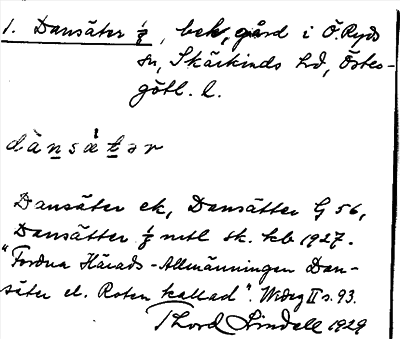 1. Dansäter 1/8, bek, gård i Ö. Ryds
sn, Skärkinds hd, Östes-
götl. l.
dànsætər
Dansäter ek, Dansätter G 56,
Dansätter 1/8 mtl sk. kb 1927.
"Fordna Härads-Allmänningen Dan-
säter el. Roten kallad". Wideg II s. 93.
Thord Lindell 1929